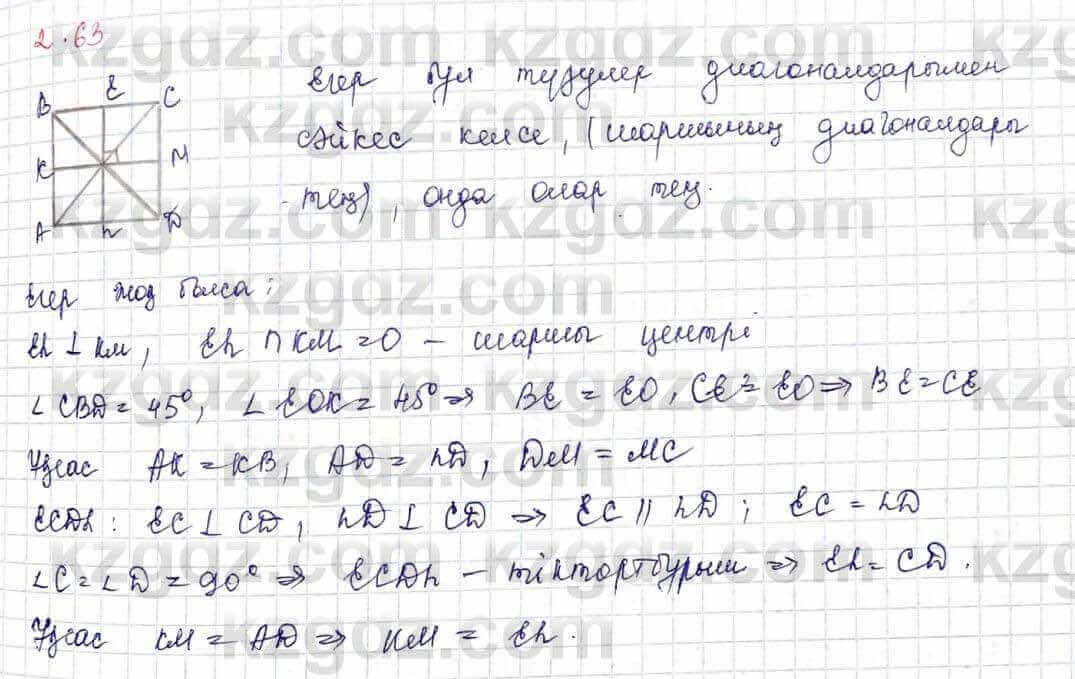 2.63
B E C
K M
A L D
Егер бұл түзулер диагональдарымен
сәйкес келсе, (шаршының диагональдары
тең), онда олар тең.
Егер жоқ болса:
EL ⊥ KM, EL ∩ KM = O – шаршы центрі
∠CBD = 45°, ∠EOK = 45° ⇒ BE = EO, CE = EO ⇒ BE = CE
Ұқсас AK = KB, AD = LD, DM = MC
ECDL: EC ⊥ CD, LD ⊥ CD ⇒ EC || LD; EC = LD
∠C = ∠D = 90° ⇒ ECDL – тіктөртбұрыш ⇒ EL = CD.
Ұқсас KM = AD ⇒ KM = EL.
kzgdz.com